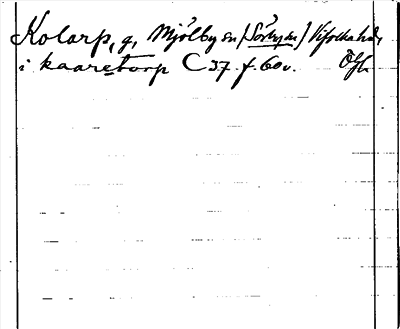 Kolarp, g, Mjölby sn (Sörby sn) Vifolka hd, Ögh
i kaaretorp C 37 f. 60v.